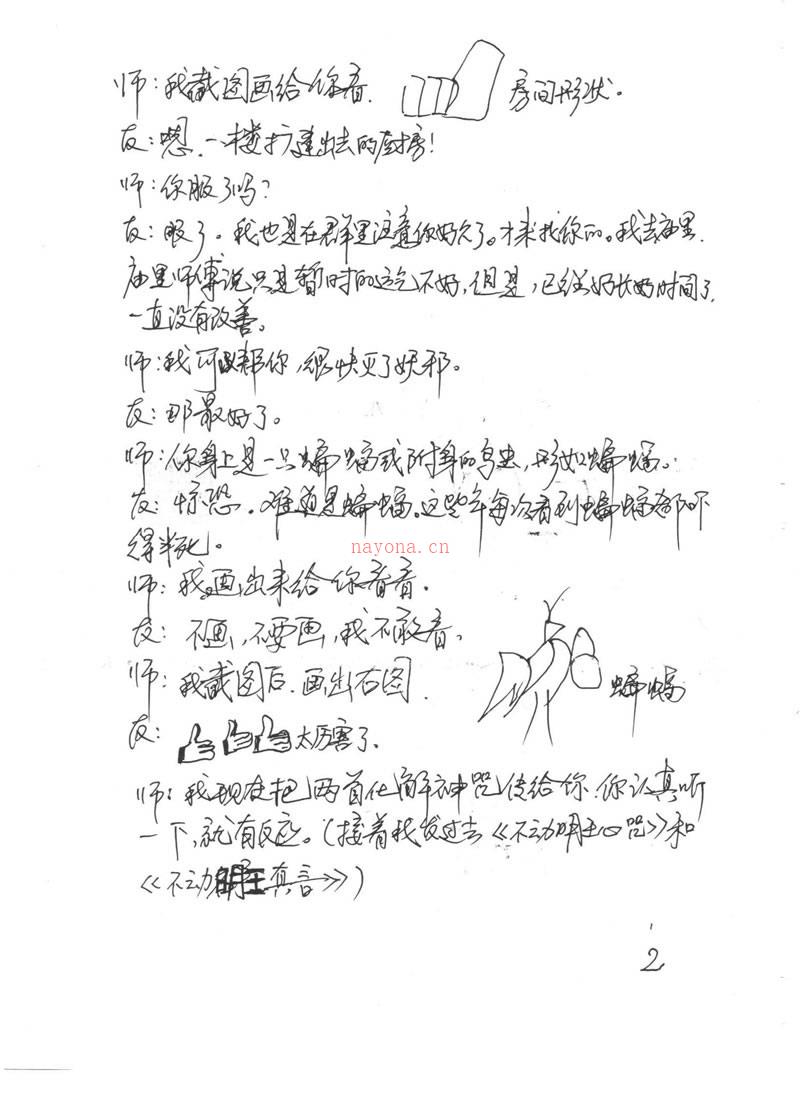 师：我截图画给你看. 房间形状。
友：嗯，一楼扩建出去的厨房！
师：你服了吗？
友：服了。我也是在群里注意你好久了。才来找你的。我去庙里，
庙里师傅说只是暂时的运气不好，但是，已经好长好时间了，
一直没有改善。
师：我可以帮你，很快灭了妖邪。
友：那最好了。
师：你身上是一只蝙蝠或附身的鸟虫，形如蝙蝠。
友：惊恐。难道是蝙蝠。这些年每次看到蝙蝠都吓
得半死。
nayona.cn
师：我画出来给你看看.
友：不画，不要画，我不敢看。
师：我截图后.画出右图.
蝙蝠
友：太厉害了.
师：我现在把两首化解神咒传给你.你认真听
一下，就有反应。（接着我发过去《不动明王心咒》和
《不动明王真言》）
2